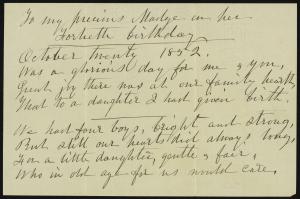 To my precious Madge on her
fortieth birthday
October twenty 1852.
Was a glorious day for me & you,
Great joy there was at our family hearth,
That to a daughter I had given birth.
We had four boys, bright and strong,
But still our hearts did always long,
For a little daughter, gentle & fair,
Who in old age for us would care.